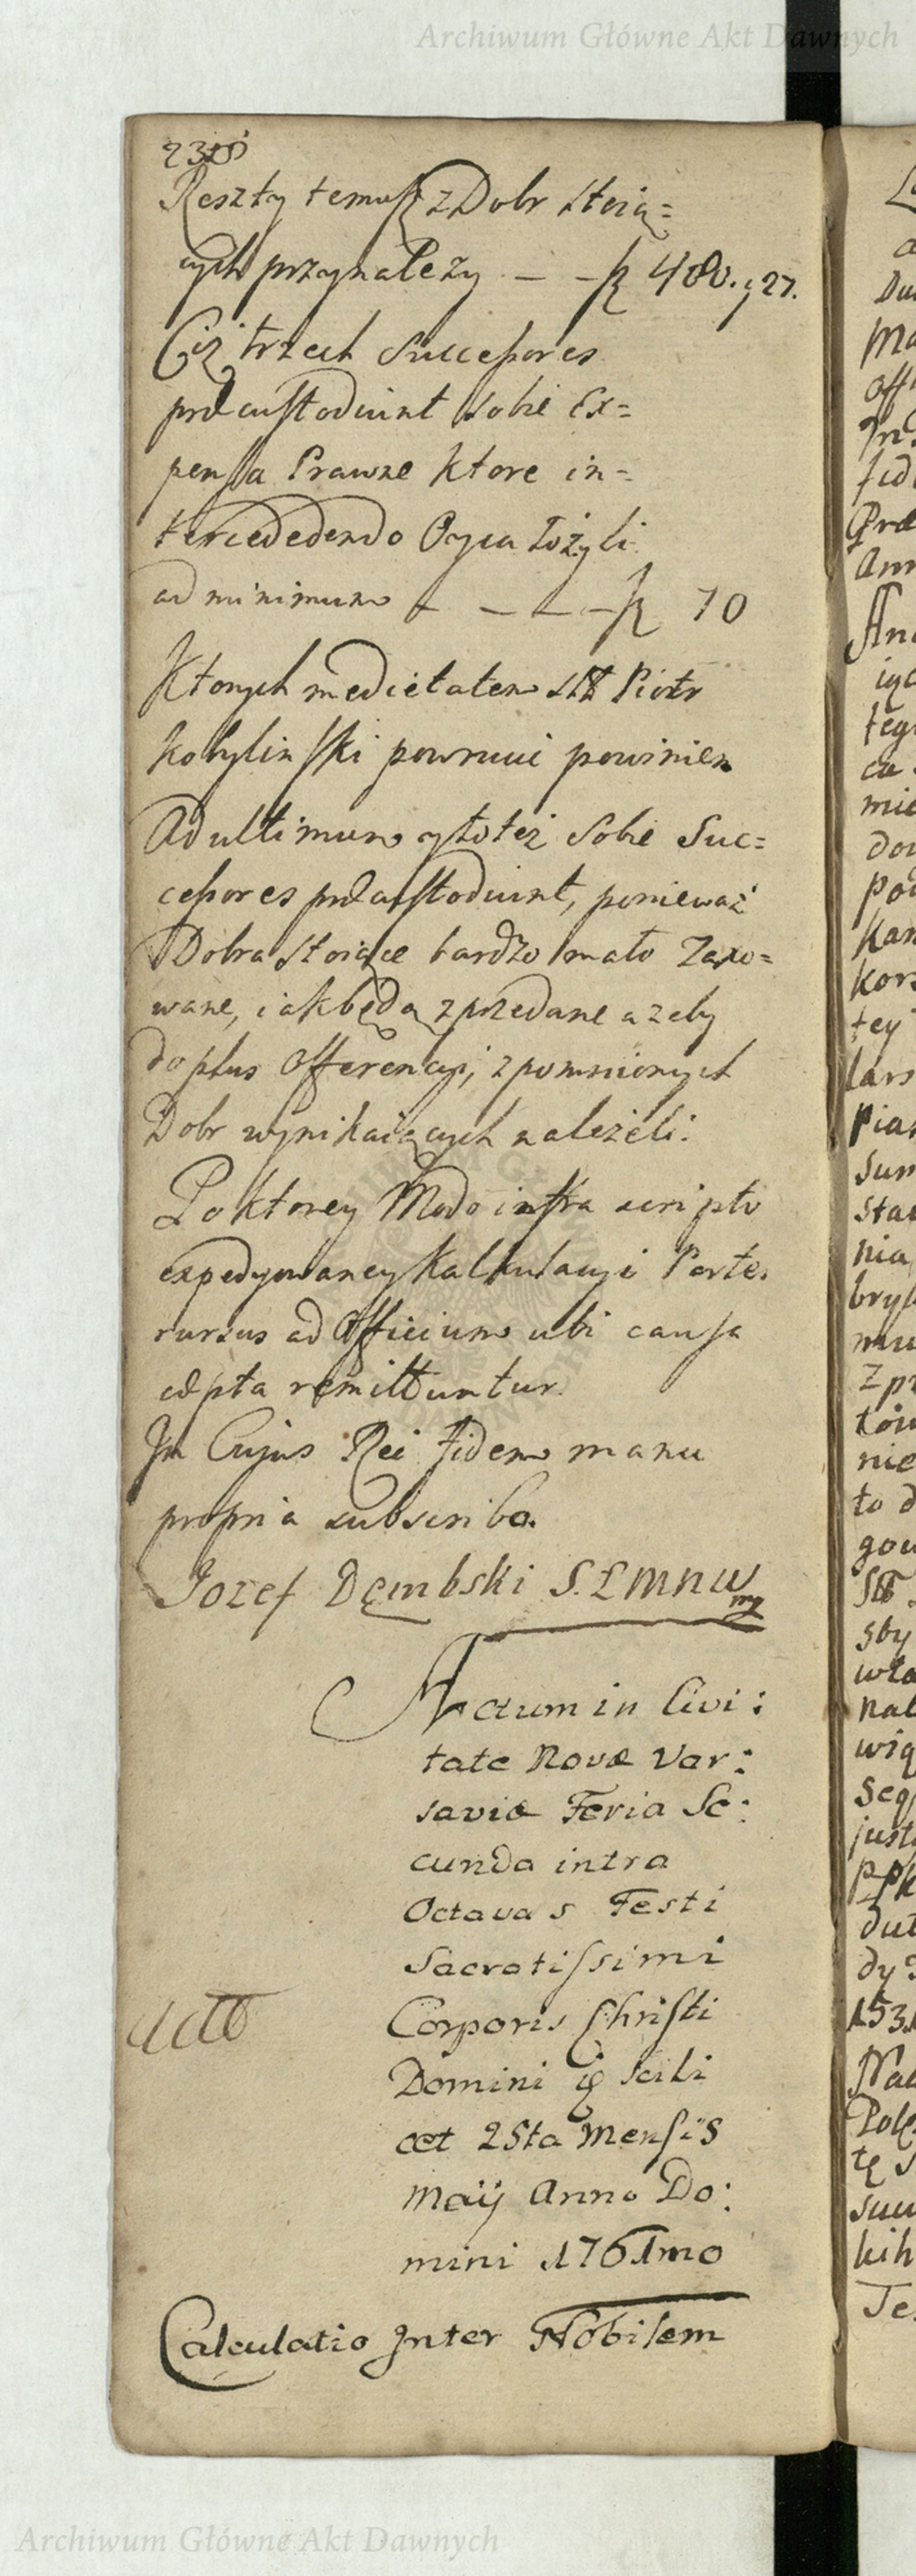 Archiwum Główne Akt Dawnych
Reszty temusz z Dobr stoią=
cych przynależy — — fl 480. g 27.
Ciż trzech Successores
præcustodiunt sobie Ex=
pensa Prawne Ktore in=
tercededendo Oyca łożyli
ad minimum — — — — fl 70
Ktorych medietatem Piotr
Kobylinski powrucic powinien
Ad ultimum y to też sobie Suc=
cessores præcustodiunt, ponieważ
Dobra stoiące bardzo mało Taxo=
wane, iak będą zprzedane azeby
do plus Offerencyi, z pomnionych
Dobr wynikaiących należeli.
Po ktorey Modo infra scripto
expedyowaney Kalkulacyi Partes
rursus ad Officium ubi causa
cæpta remittuntur.
In Cujus Rei fidem manu
propria subscribo.
Jozef Dęmbski S. L M N W mp
Actum in Civi:
tate Novæ Var:
saviæ Feria Se:
cunda intra
Octavas Festi
Sacratissimi
Corporis Christi
Domini scili
cet 25ta Mensis
Maij Anno Do:
mini 1761mo
Calculatio Inter Nobilem
Archiwum Główne Akt Dawnych